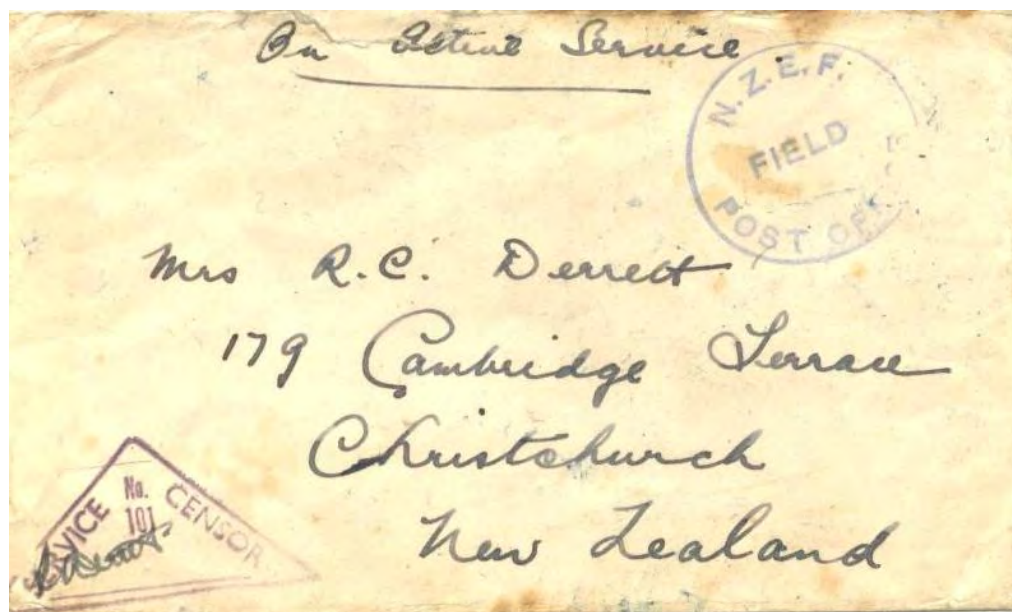 On Active Service
N.Z.E.F.
FIELD
POST OF
Mrs R.C. Derrett
179 Cambridge Terrace
Christchurch
New Zealand
No.
101
CENSOR